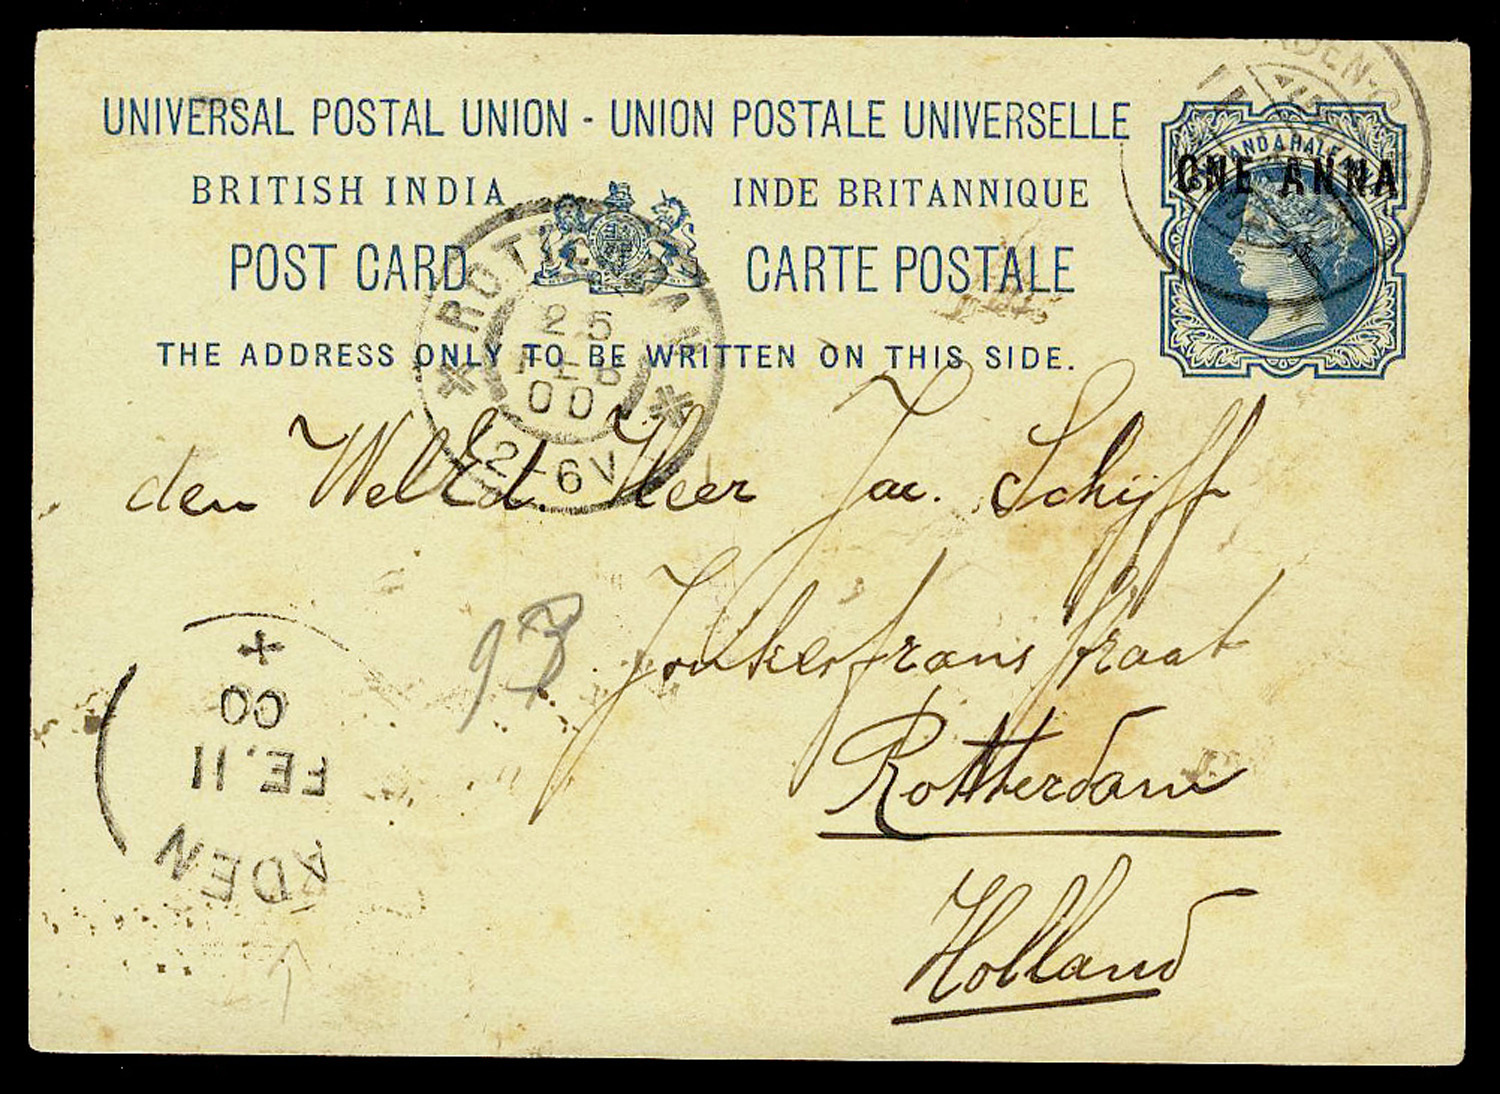 UNIVERSAL POSTAL UNION - UNION POSTALE UNIVERSELLE
BRITISH INDIA INDE BRITANNIQUE
POST CARD CARTE POSTALE
THE ADDRESS ONLY TO BE WRITTEN ON THIS SIDE.
AND A HALF
ONE ANNA
ADEN-C
ROTTERDAM
25
FEB
00
12-6V
den WelEd. Heer Jac. Schijff
Jonkerfransstraat
Rotterdam
Holland
ADEN
FE.11
00